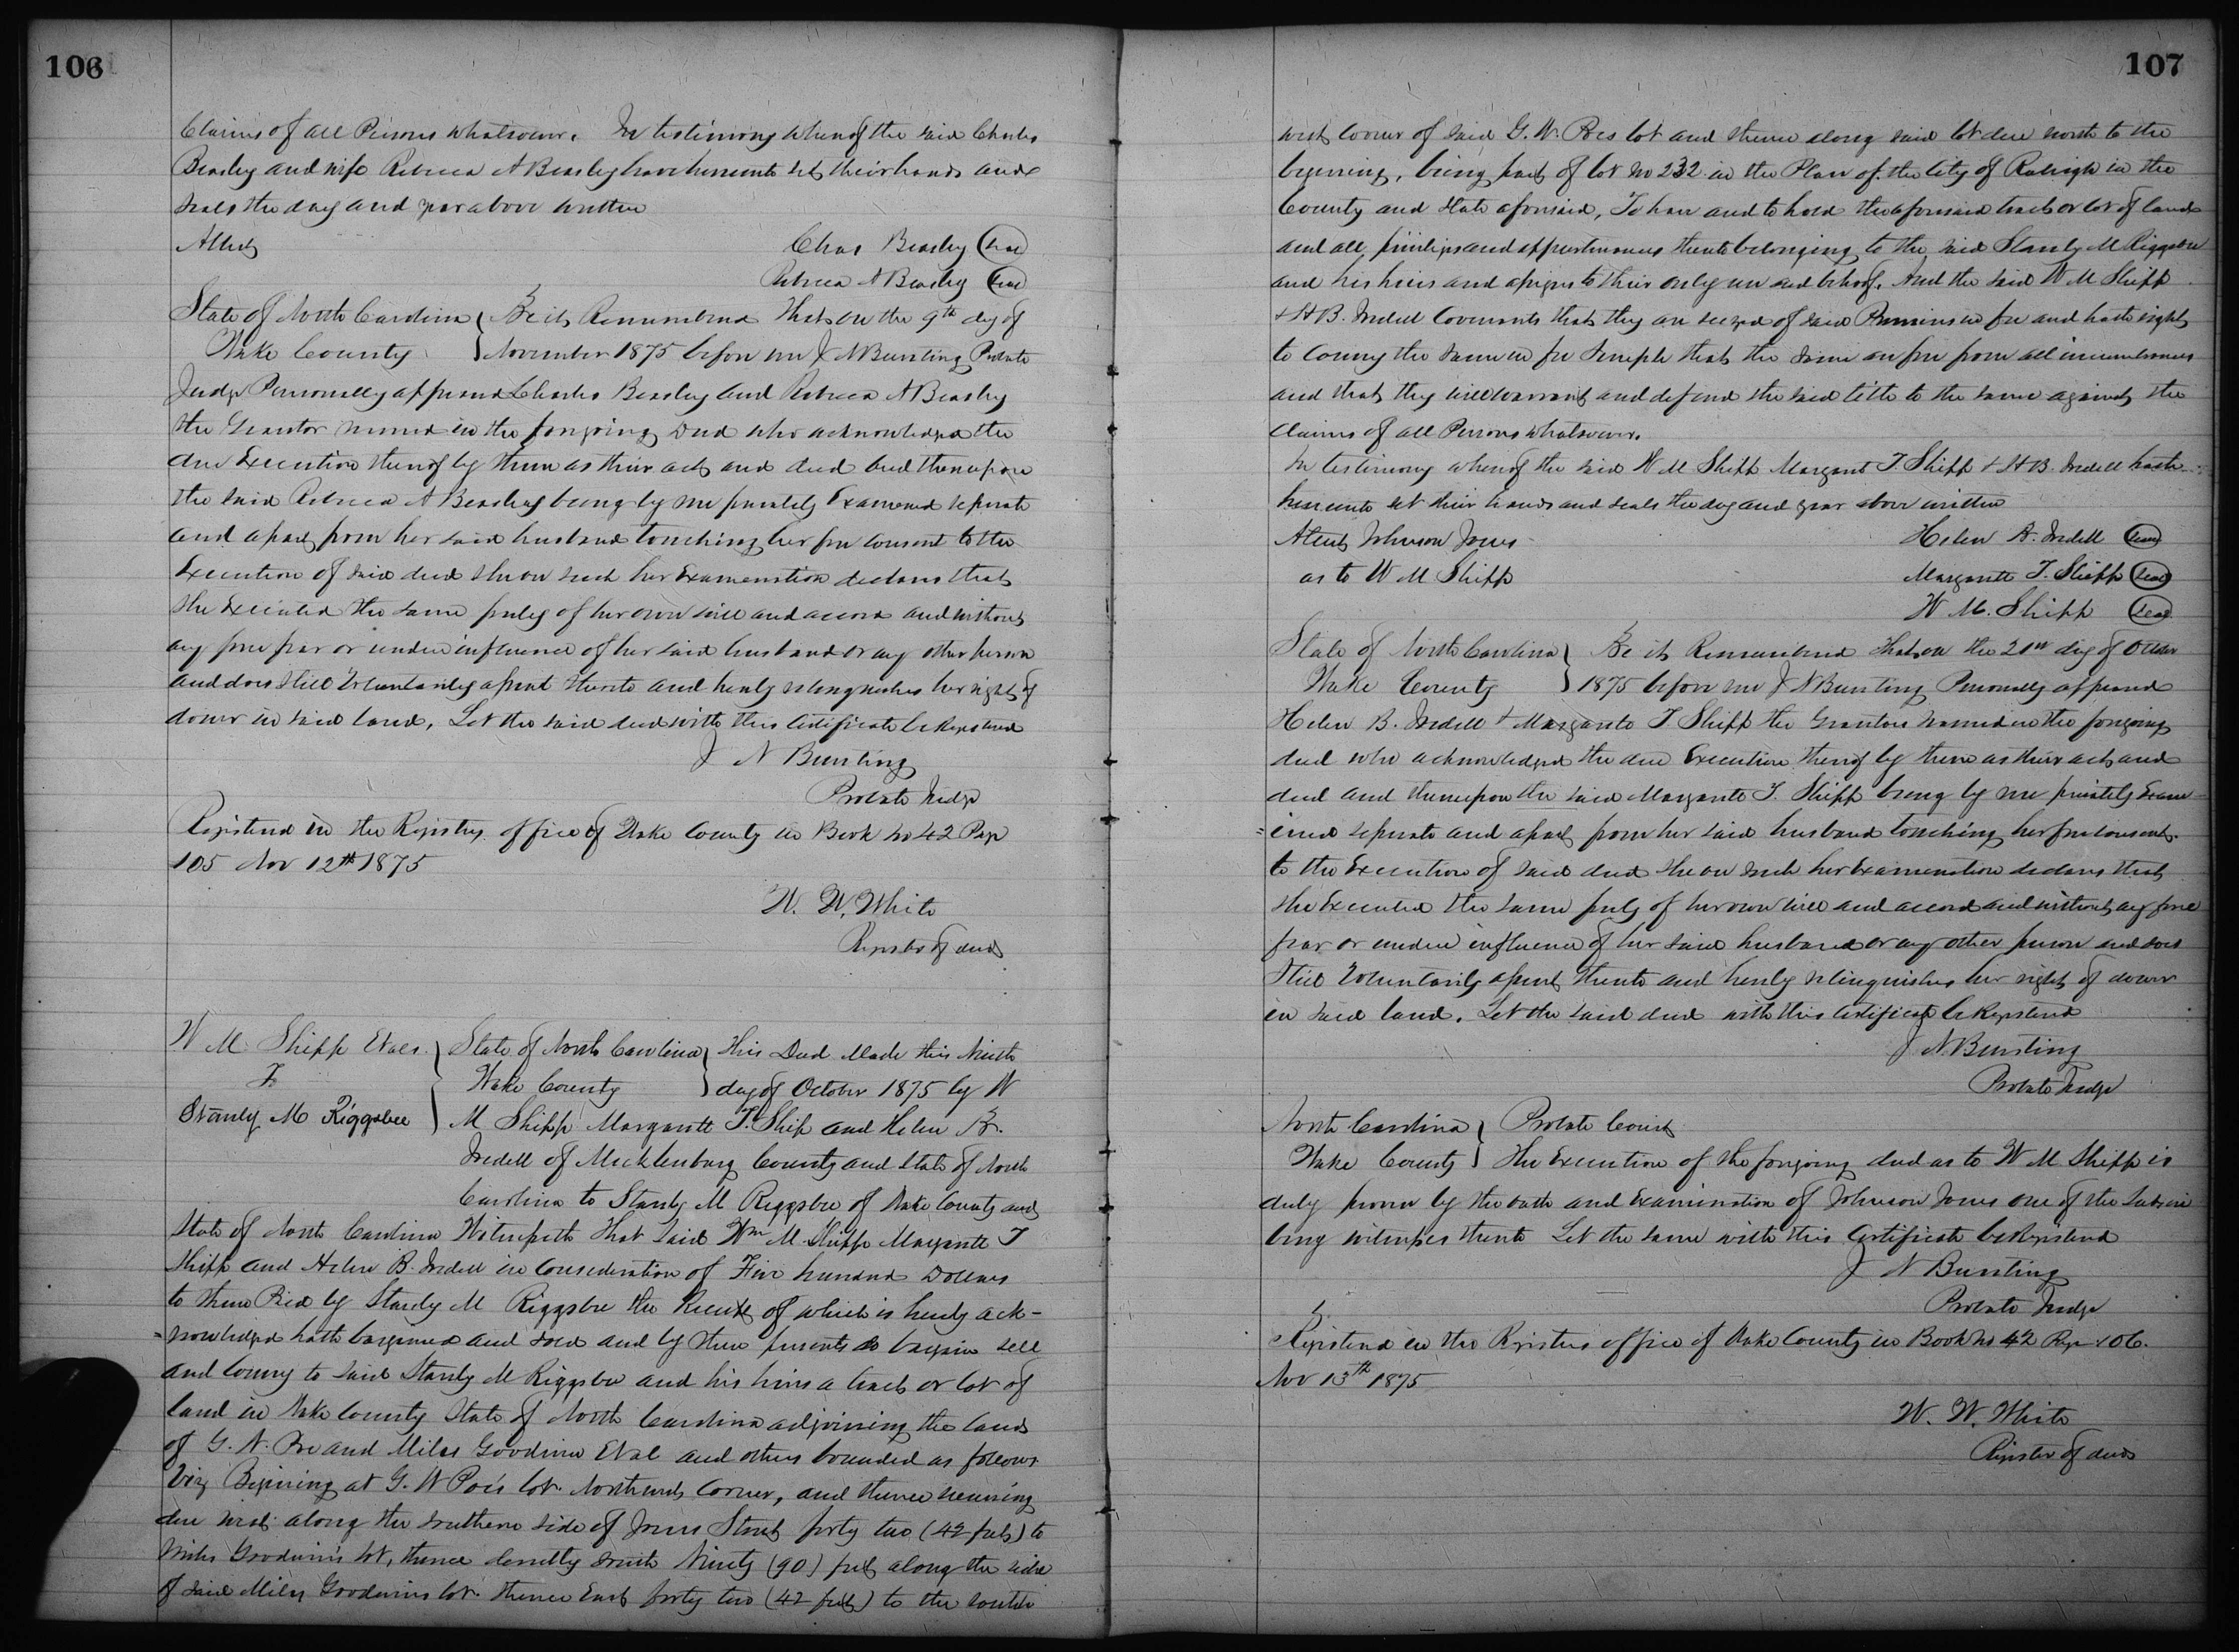 106
Claims of all Persons whatsoever. In testimony whereof the said Charles
Beasley and wife Rebecca A Beasley have hereunto set their hands and
seals the day and year above written
Attest Chas Beasley (seal)
Rebecca A Beasley (seal)
State of North Carolina } Be it Remembered That on the 9th day of
Wake County } November 1875 before me J N Bunting Probate
Judge Personally appeared Charles Beasley and Rebecca A Beasley
the Grantor named in the foregoing Deed who acknowledged the
due Execution thereof by them as their act and deed and thereupon
the said Rebecca A Beasley being by me privately Examined seperate
and apart from her said husband touching her free consent to the
Execution of said deed she on such her Examenation declares that
she Executed the same freely of her own will and accord and without
any force fear or undue influence of her said husband or any other person
and does still Voluntarily assent thereto and hereby relinquishes her right of
dower in said land. Let the said deed with this Certificate be Registered
J N Bunting
Probate Judge
Registered in the Registry office of Wake County in Book no 42 Page
105 Nov 12th 1875
W. W. White
Register of deeds
W M Shipp Et als } State of North Carolina } This Deed Made this Ninth
To } Wake County } day of October 1875 by W
Stanly M Riggsbee } M Shipp Margarett T. Ship and Helen B.
Iredell of Mecklenburg County and State of North
Carolina to Stanly M Riggsbee of Wake County and
State of North Carolina Witnesseth That said Wm M. Shipp Margarett T
Shipp and Helen B. Iredell in Consideration of Five hundred Dollars
to them Paid by Stanly M Riggsbee the Receipt of which is hereby ack-
=nowledged hath bargained and sold and by these presents do bargain sell
and Convey to said Stanly M Riggsbee and his heirs a tract or lot of
land in Wake County State of North Carolina adjoining the lands
of G. W. Poe and Miles Goodwin Et al and others bounded as follows
Viz Begining at G. W Poe's lot Northwest Corner, and thence running
due west along the southern side of Jones Street forty two (42 feet) to
Miles Goodwin's lot, thence directly south Ninety (90) feet along the side
of said Miles Goodwins lot. thence East forty two (42 feet) to the south
107
west corner of said G. W. Poes lot and thence along said lot due north to the
begining, being part of lot no 232 in the Plan of the City of Raleigh in the
County and State aforesaid, To have and to hold the aforesaid tract or lot of land
and all priviliges and appurtenances thereto belonging to the said Stanly M Riggsbee
and his heirs and assigns to their only use and behoof. And the said W M Shipp
& H B. Iredell Covenants that they are seized of said Premises in fee and hath right
to Convey the same in fee simple that the same are free from all incumbrances
and that they will warrant and defend the said title to the same against the
claims of all Persons whatsoever.
In testimony whereof the said W M Shipp Margaret T. Shipp & H B. Iredell hath
hereunto set their hands and seals the day and year above written
Attest Johnson Jones Helen B. Iredell (seal)
as to W M Shipp Margarett T. Shipp (seal)
W M. Shipp (seal)
State of North Carolina } Be it Remembered That on the 21st day of October
Wake County } 1875 before me J N Bunting Personally appeared
Helen B. Iredell & Margarett T Shipp the Grantors named in the foregoing
deed who acknowledged the due Execution thereof by them as their act and
deed and thereupon the said Margarett T. Shipp being by me privately Exam-
=ined seperate and apart from her said husband touching her free consent
to the Execution of said deed she on such her Examenation declares that
she Executed the same freely of her own will and accord and without any force
fear or undue influence of her said husband or any other person and does
still Voluntarily assent thereto and hereby relinquishes her right of dower
in said land. Let the said deed with this Certificate be Registered
J N. Bunting
Probate Judge
North Carolina } Probate Court
Wake County } The Execution of the foregoing deed as to W M Shipp is
duly proven by the oath and Examination of Johnson Jones one of the subscri
bing witnesses thereto Let the same with this Certificate be Registered
J N Bunting
Probate Judge
Registered in the Registers office of Wake County in Book no 42 Page 106.
Nov 13th 1875
W. W. White
Register of deeds